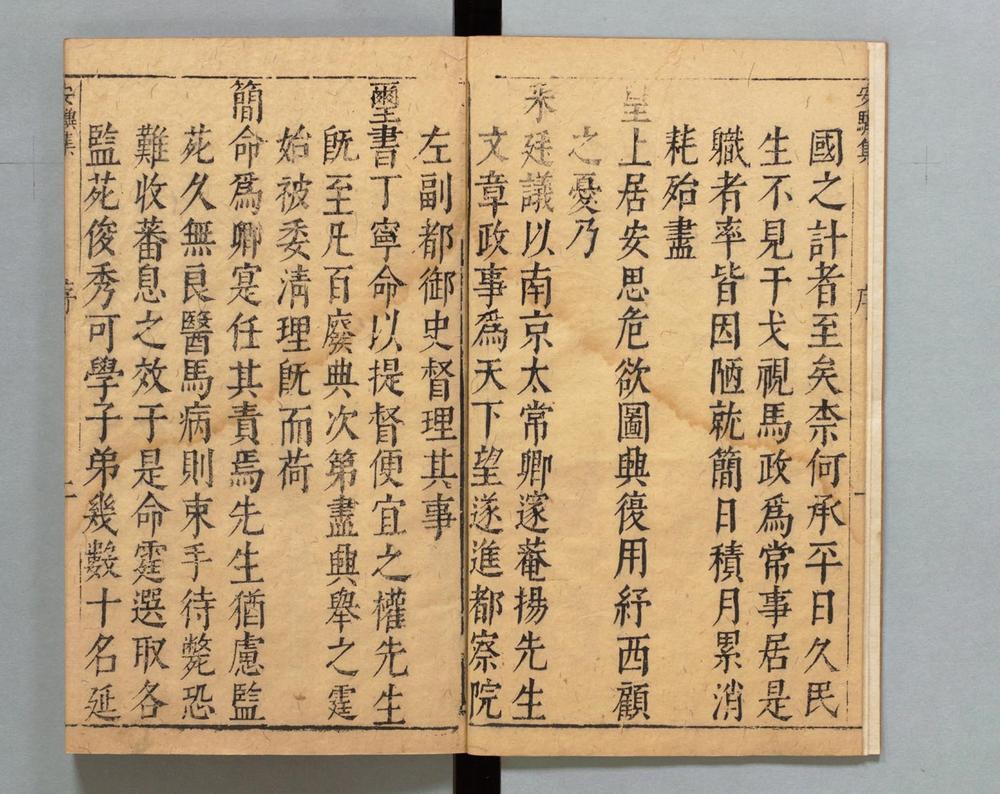 國之計者至矣柰何承平日久民
生不見干戈視馬政爲常事居是
職者率皆因陋就簡日積月累消
耗殆盡
皇上居安思危欲圖興復用紓西顧
之憂乃
采廷議以南京太常卿邃菴揚先生
文章政事爲天下望遂進都察院
左副都御史督理其事
璽書丁寧命以提督便宜之權先生
旣至凡百廢典次第盡興舉之霆
始被委淸理旣而荷
簡命爲卿寔任其責焉先生猶慮監
苑久無良醫馬病則束手待斃恐
難收蕃息之效于是命霆選取各
監苑俊秀可學子弟幾數十名延
安驥集
序